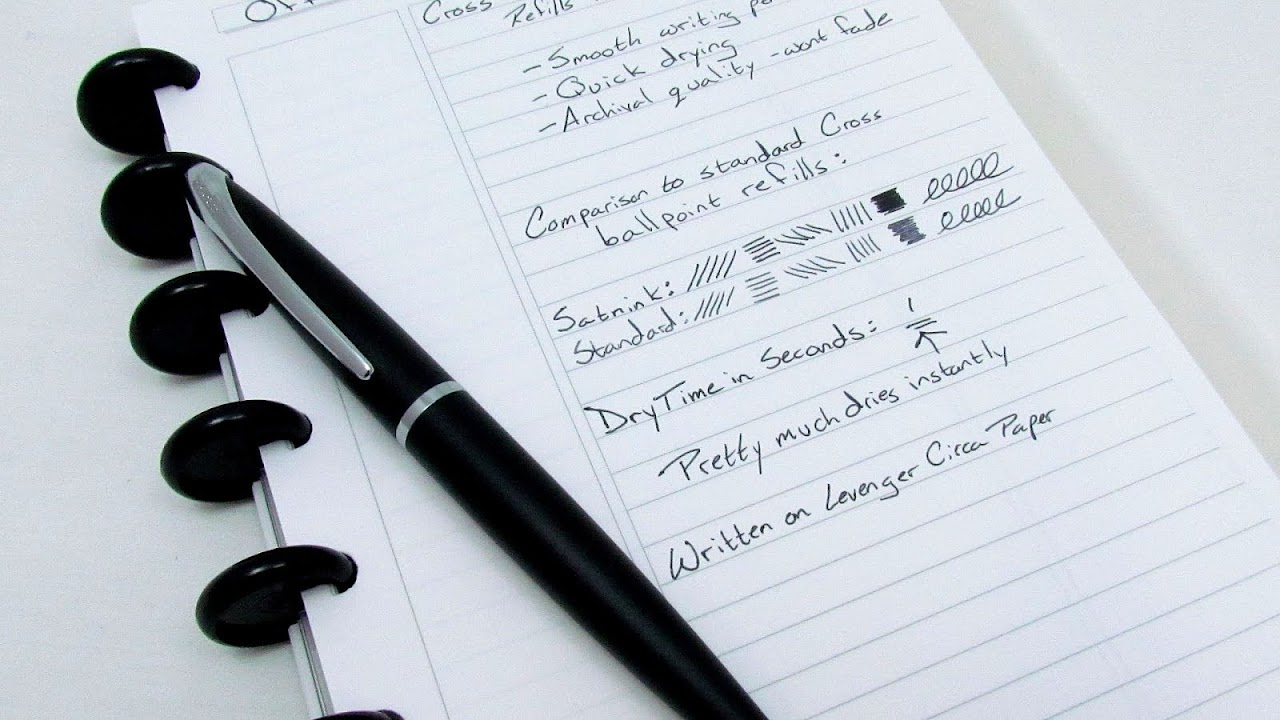 Cross
Refills
- Smooth writing
- Quick drying
- Archival quality - wont fade
Comparison to standard Cross
ballpoint refills:
Satnink:
Standard:
Dry Time in Seconds: 1
Pretty much dries instantly
Written on Levenger Circa Paper